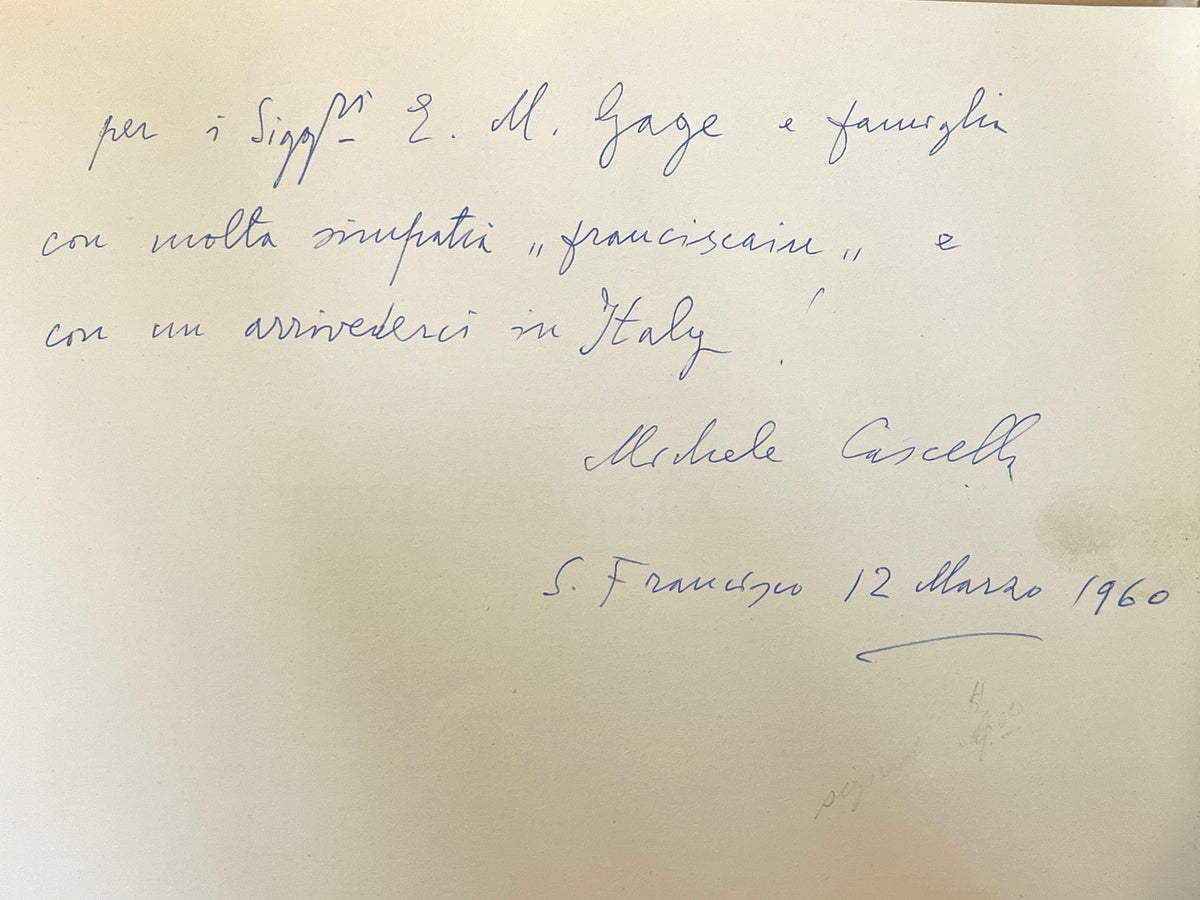 per i Sigg^ri E. M. Gage e famiglia
con molta simpatia „franciscain„ e
con un arrivederci in Italy !
Michele Cascella
S. Francisco 12 Marzo 1960
signed